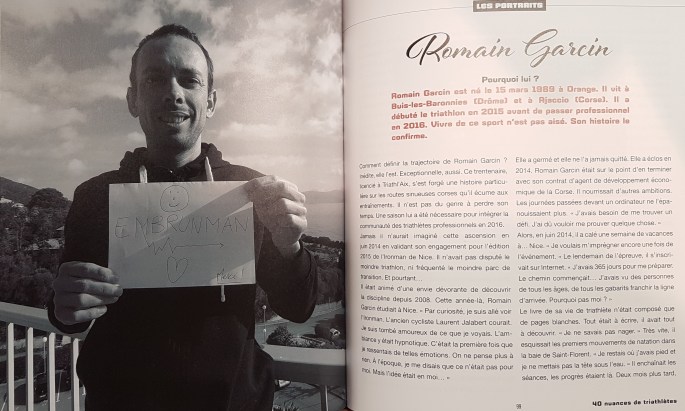 EMBRONMAN
LES PORTRAITS
Romain Garcin
Pourquoi lui ?
Romain Garcin est né le 15 mars 1989 à Orange. Il vit à
Buis-les-Baronnies (Drôme) et à Ajaccio (Corse). Il a
débuté le triathlon en 2015 avant de passer professionnel
en 2016. Vivre de ce sport n'est pas aisé. Son histoire le
confirme.
Comment définir la trajectoire de Romain Garcin ?
Inédite, elle l'est. Exceptionnelle, aussi. Ce trentenaire,
licencié à Triathl'Aix, s'est forgé une histoire particu-
liers sur les routes sinueuses corses qu'il écume aux
entraînements. Il n'est pas du genre à perdre son
temps. Une saison lui a été nécessaire pour intégrer la
communauté des triathlètes professionnels en 2016.
Jamais il n'aurait imaginé cette ascension en
juin 2014 en validant son engagement pour l'édition
2015 de l'Ironman de Nice. Il n'avait pas disputé le
moindre triathlon, ni fréquenté le moindre parc de
transition. Et pourtant...
Il était animé d'une envie dévorante de découvrir
la discipline depuis 2008. Cette année-là, Romain
Garcin étudiait à Nice. « Par curiosité, je suis allé voir
l'Ironman. L'ancien cycliste Laurent Jalabert courait.
Je suis tombé amoureux de ce que je voyais. L'am-
biance y était hypnotique. C'était la première fois que
je ressentais de telles émotions. On ne pense plus à
rien. À l'époque, je me disais que ce n'était pas pour
moi. Mais l'idée était en moi... »
Elle a germé et elle ne l'a jamais quitté. Elle a éclos en
2014. Romain Garcin était sur le point d'en terminer
avec son contrat d'agent de développement écono-
mique de la Corse. Il nourrissait d'autres ambitions.
Les journées passées devant un ordinateur ne l'épa-
nouissaient plus. « J'avais besoin de me trouver un
défi. J'ai dû vouloir me prouver quelque chose. »
Alors, en juin 2014, il a calé une semaine de vacances
à... Nice. « Je voulais m'imprégner encore une fois de
l'événement. » Le lendemain de l'épreuve, il s'inscri-
vait sur Internet. « J'avais 365 jours pour me préparer.
Le chemin commençait... J'avais vu des personnes
de tous les âges, de tous les gabarits franchir la ligne
d'arrivée. Pourquoi pas moi ? »
Le livre de sa vie de triathlète n'était composé que
de pages blanches. Tout était à écrire, il avait tout
à découvrir. « Je ne savais pas nager. » Très vite, il
esquissait les premiers mouvements de natation dans
la baie de Saint-Florent. « Je restais où j'avais pied et
je ne mettais pas la tête sous l'eau. » Il enchaînait les
séances, les progrès étaient là. Deux mois plus tard,
40 nuances de triathlètes